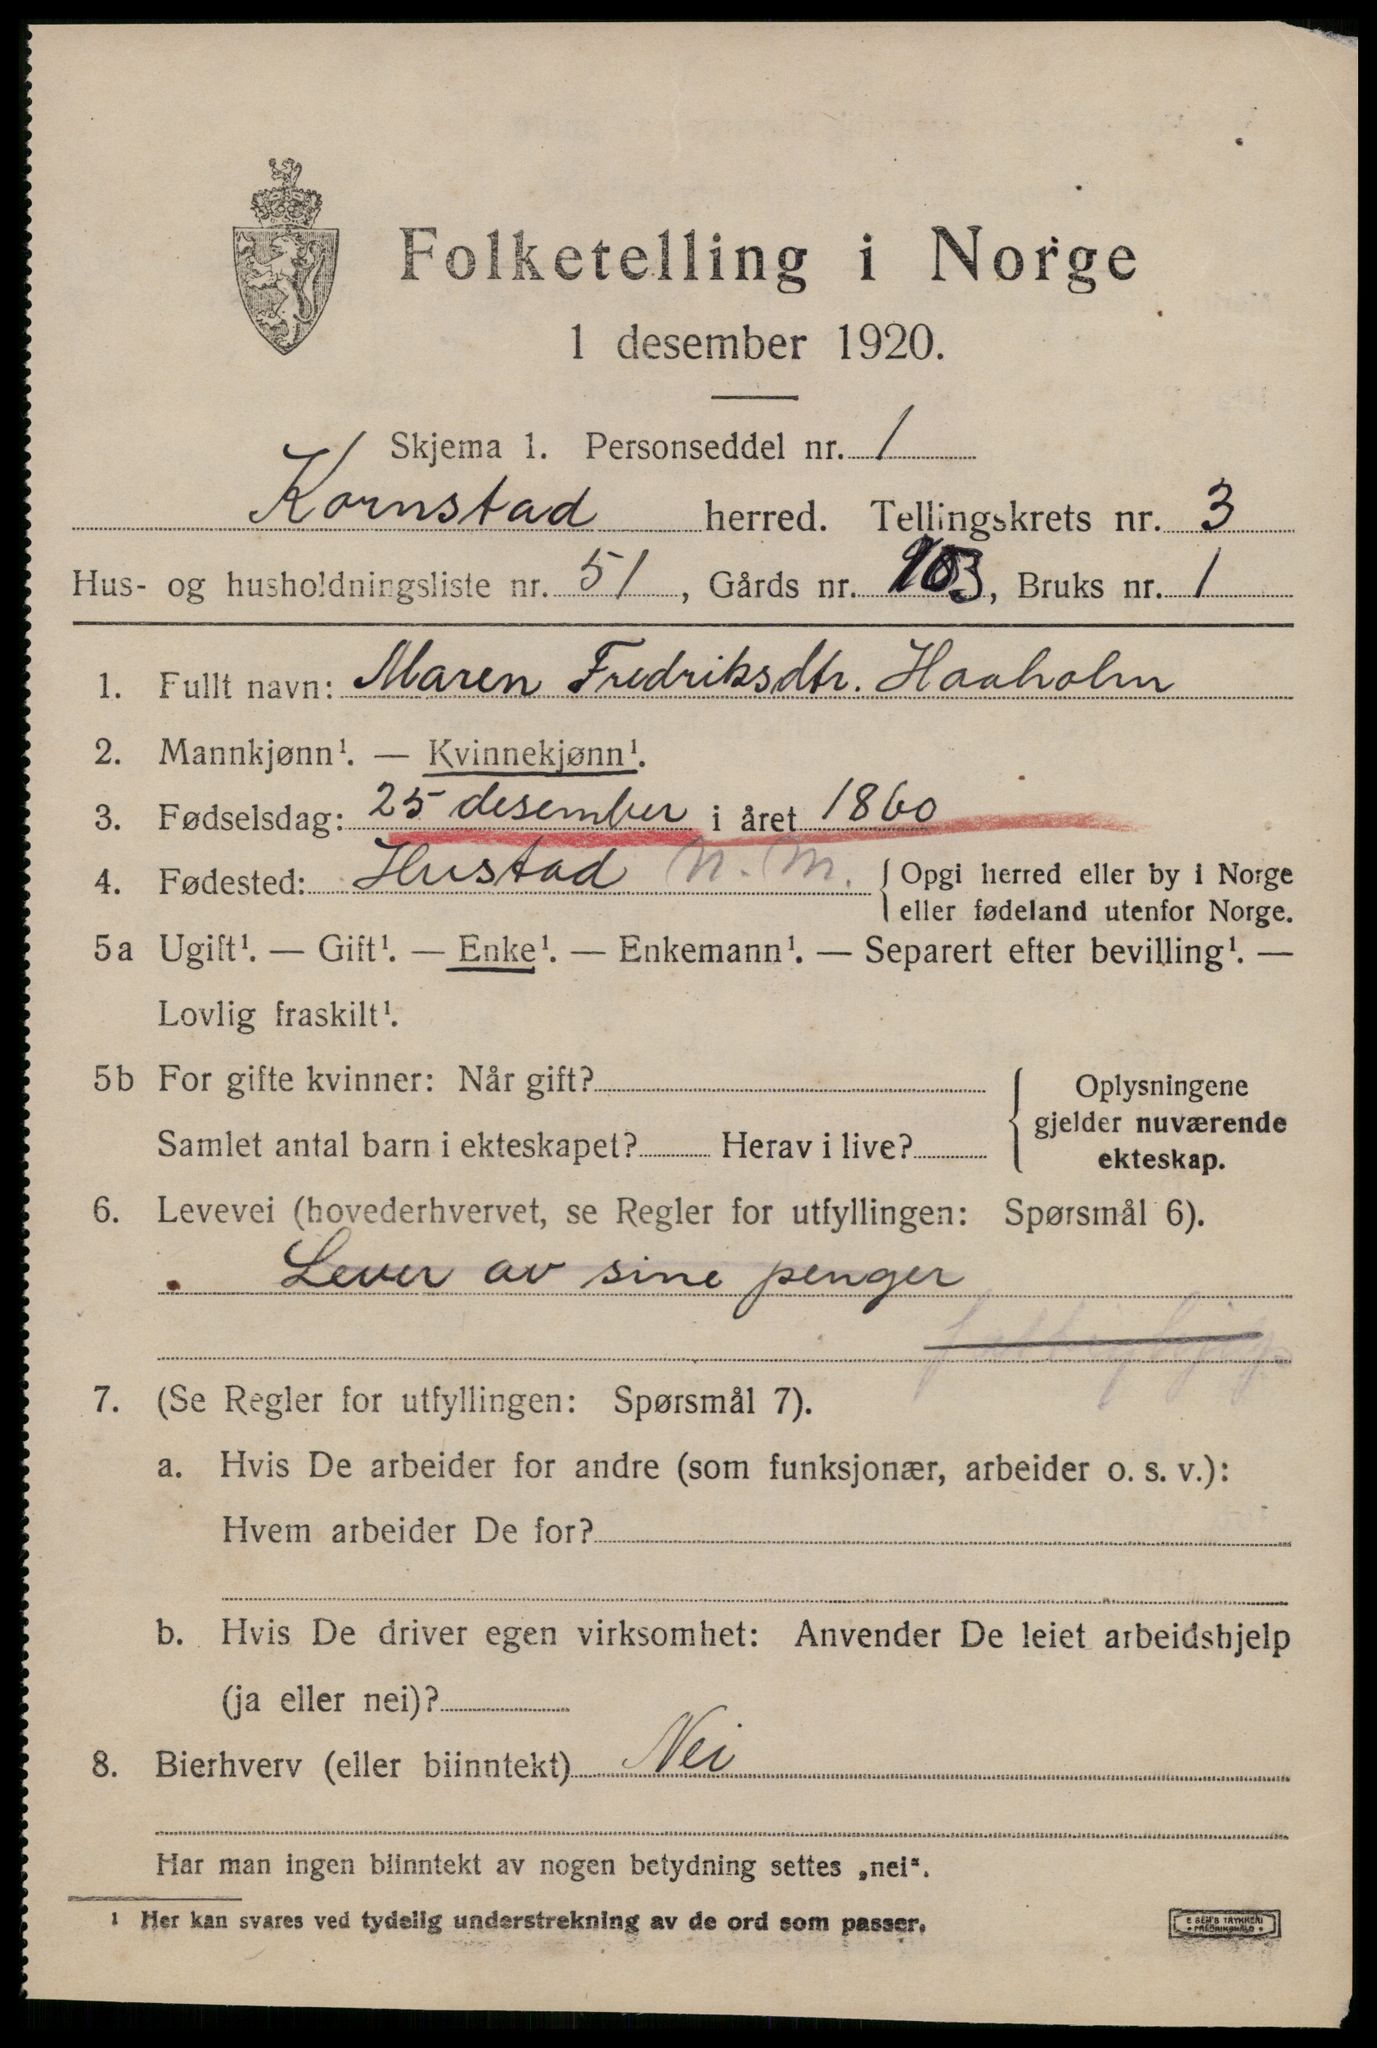 Folketelling i Norge
1 desember 1920.
Skjema 1. Personseddel nr. 1
Kornstad herred. Tellingskrets nr. 3
Hus- og husholdningsliste nr. 51, Gårds nr. 103, Bruks nr. 1
1. Fullt navn: Maren Fredriksdtr. Haaholm
2. Mannkjønn¹. — Kvinnekjønn¹.
3. Fødselsdag: 25 desember i året 1860
4. Fødested: Hustad N. M. { Opgi herred eller by i Norge
eller fødeland utenfor Norge.
5a Ugift¹. — Gift¹. — Enke¹. — Enkemann¹. — Separert efter bevilling¹. —
Lovlig fraskilt¹.
5b For gifte kvinner: Når gift?
Samlet antal barn i ekteskapet? Herav i live?
Oplysningene
gjelder nuværende
ekteskap.
6. Levevei (hovederhvervet, se Regler for utfyllingen: Spørsmål 6).
Lever av sine penger
7. (Se Regler for utfyllingen: Spørsmål 7).
a. Hvis De arbeider for andre (som funksjonær, arbeider o. s. v.):
Hvem arbeider De for?
b. Hvis De driver egen virksomhet: Anvender De leiet arbeidshjelp
(ja eller nei)?
8. Bierhverv (eller biinntekt) Nei
Har man ingen biinntekt av nogen betydning settes „nei".
¹ Her kan svares ved tydelig understrekning av de ord som passer.
E SEM'S TRYKKERI
FREDRIKSHALD